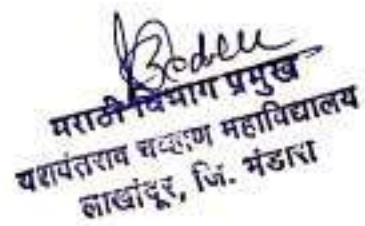 मराठी विभाग प्रमुख
यशवंतराव चव्हाण महाविद्यालय
लाखांदूर, जि. भंडारा